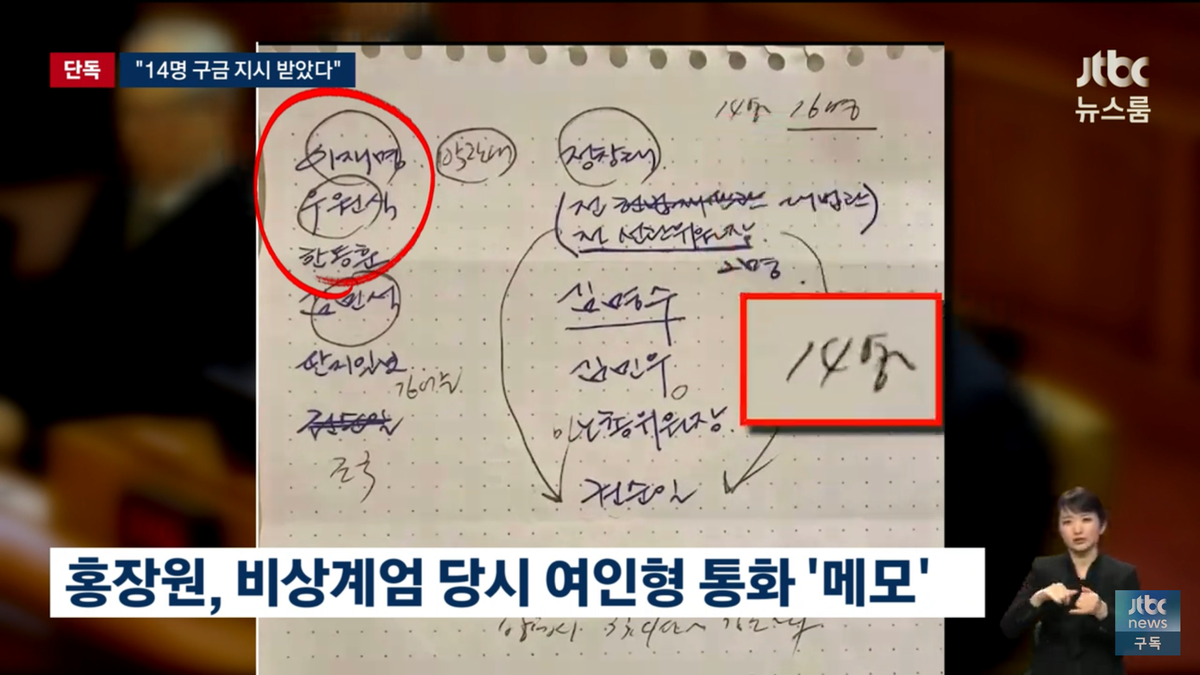 단독
"14명 구금 지시 받았다"
jtbc
뉴스룸
14명 16명
이재명
박찬대
정청래
우원식
대법관
전 선관위원장
한동훈
김민석
김명수
딴지일보
김어준
김민웅
조국
권순일
14명
홍장원, 비상계엄 당시 여인형 통화 '메모'
jtbc
news
구독